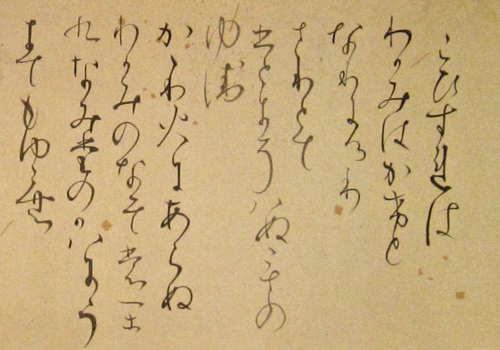 こひすれは
わかみはかけと
なりにけり
さりとて
ひとにそはぬもの
ゆゑ
かゝり火にあらぬ
わかみのなそもか
くなみたのかはにう
きてもゆらむ